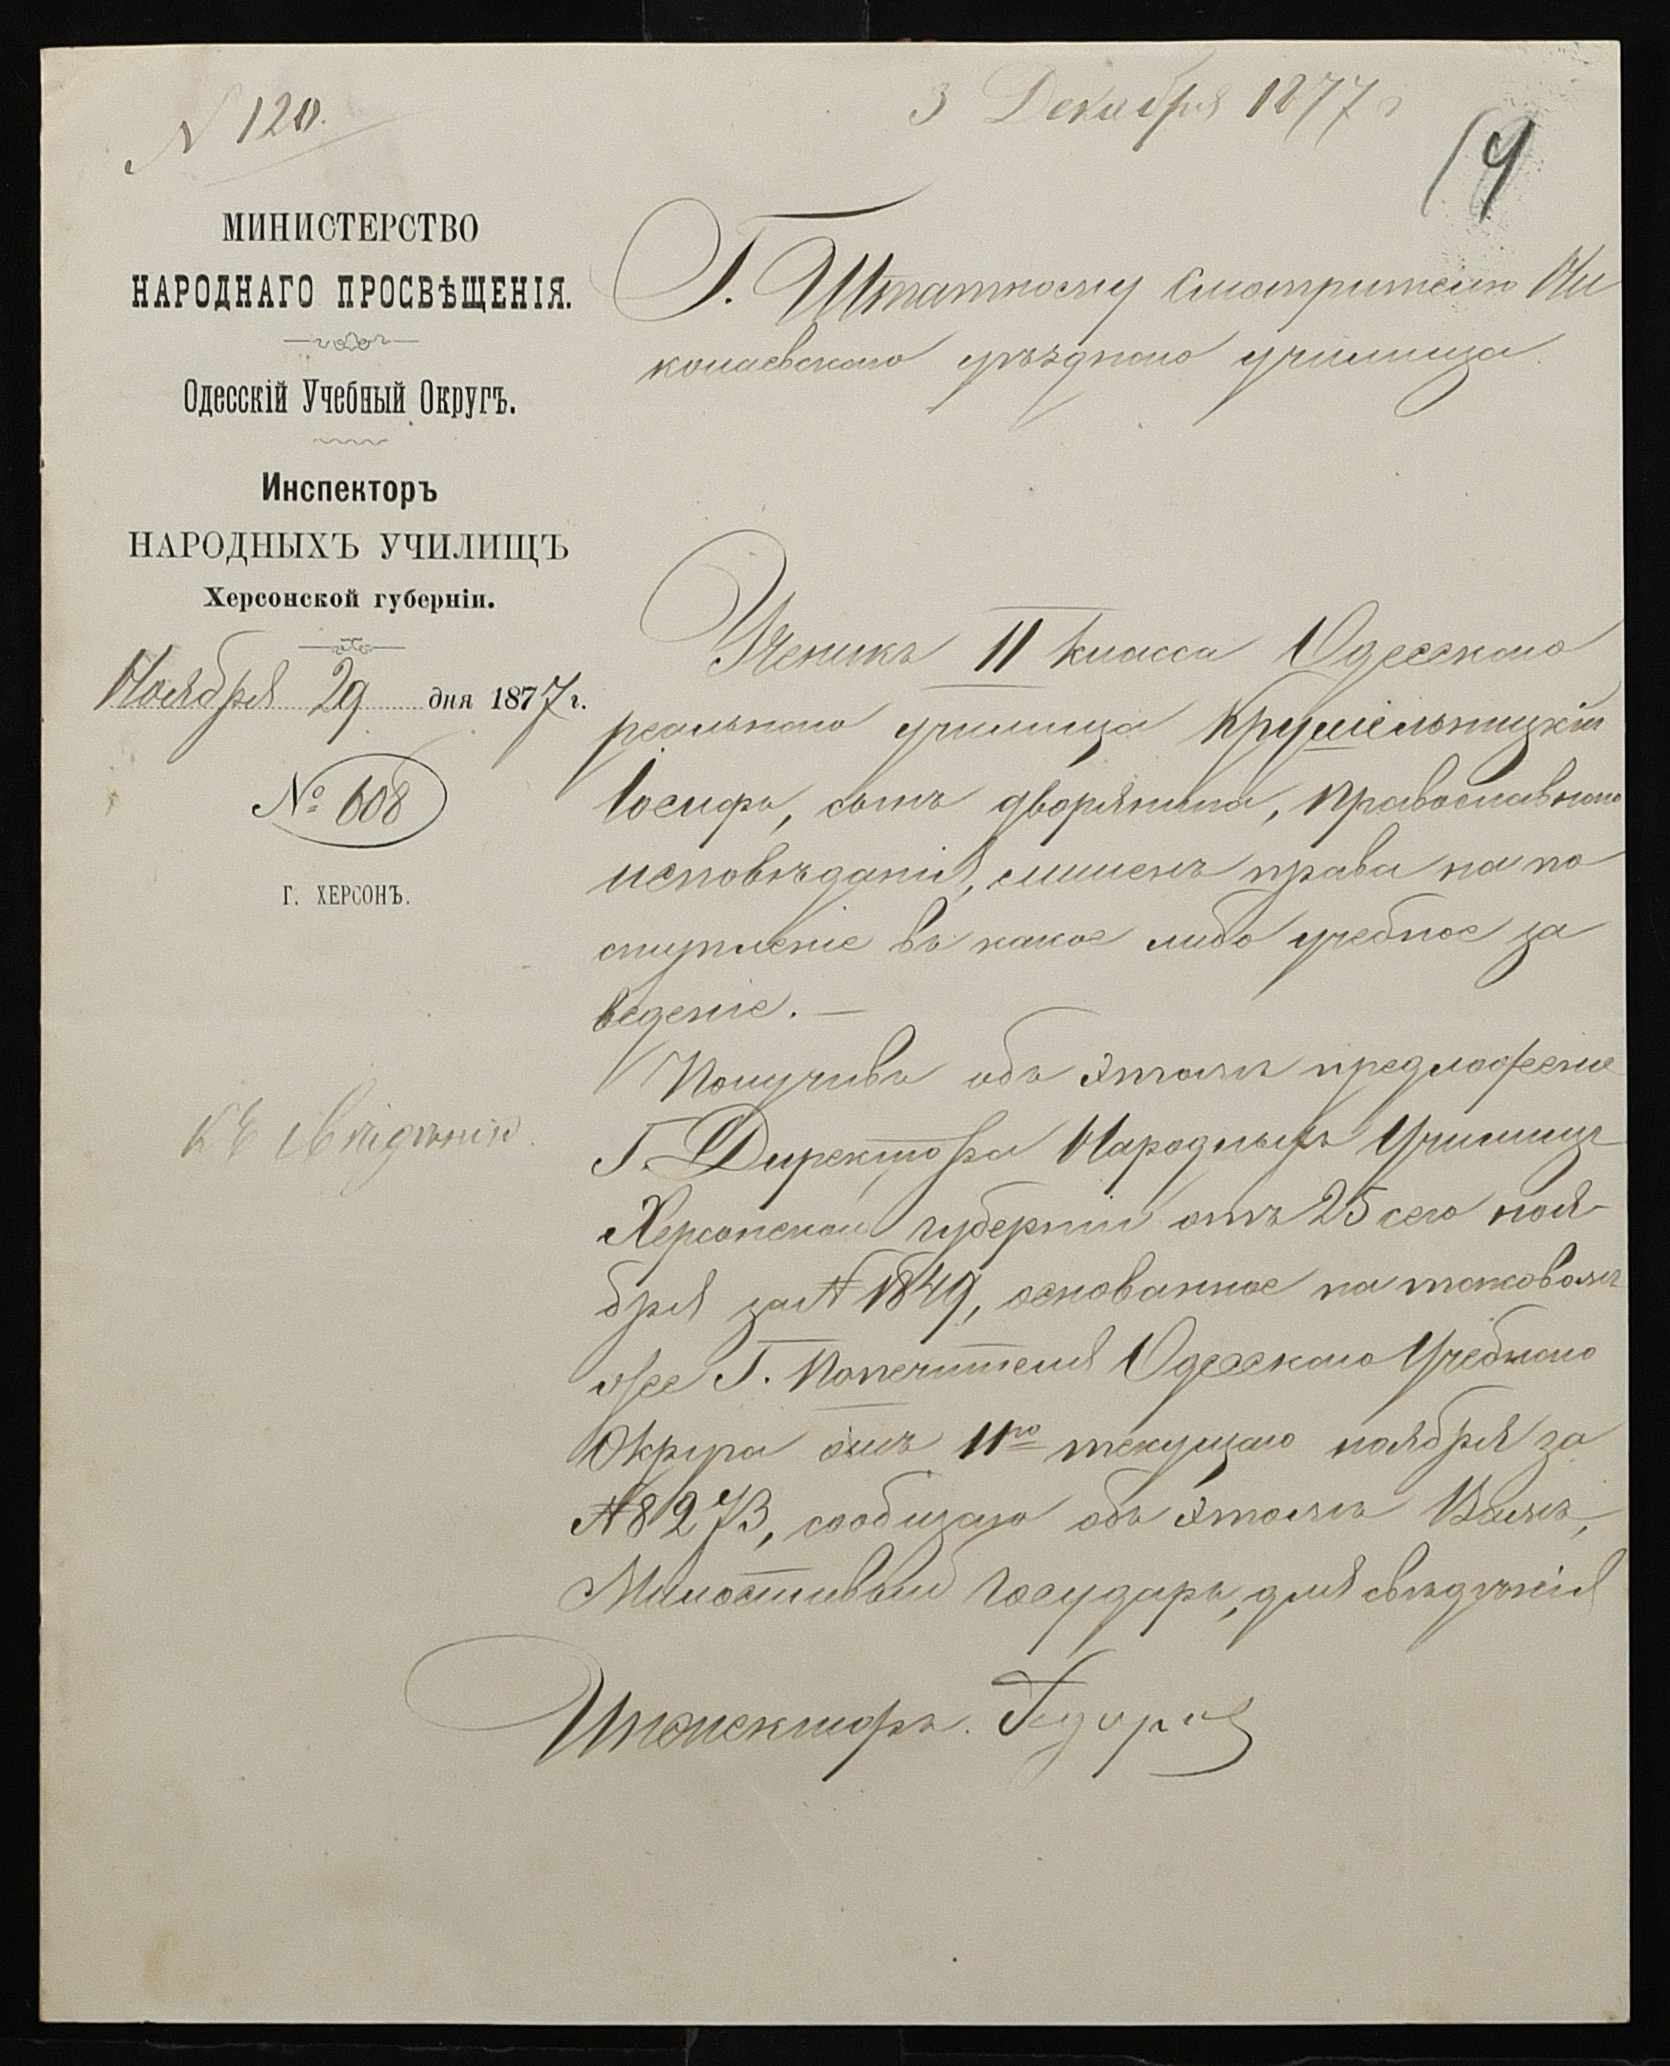 № 120.
3 Декабря 1877 г
МИНИСТЕРСТВО
НАРОДНАГО ПРОСВѢЩЕНІЯ.
Одесскій Учебный Округъ.
Инспекторъ
НАРОДНЫХЪ УЧИЛИЩЪ
Херсонской губерніи.
Ноября 29 дня 1877 г.
№ 608
Г. ХЕРСОНЪ.
Къ свѣдѣнію.
Г. Штатному Смотрителю Ни
колаевскаго уѣзднаго училища.
Ученикъ II класса Одесскаго
реальнаго училища Крушельницкій
Іосифъ, сынъ дворянина, православнаго
исповѣданія, лишенъ права на по
ступленіе въ какое либо учебное за
веденіе. —
Получивъ объ этомъ предложеніе
Г. Директора Народныхъ Училищъ
Херсонской губерніи отъ 25 сего ноя-
бря за № 1849, основанное на таковомъ
же Г. Попечителя Одесскаго Учебнаго
Округа отъ 11го текущаго ноября за
№ 8273, сообщаю объ этомъ Вамъ,
Милостивый Государь, для свѣдѣнія
Инспекторъ.